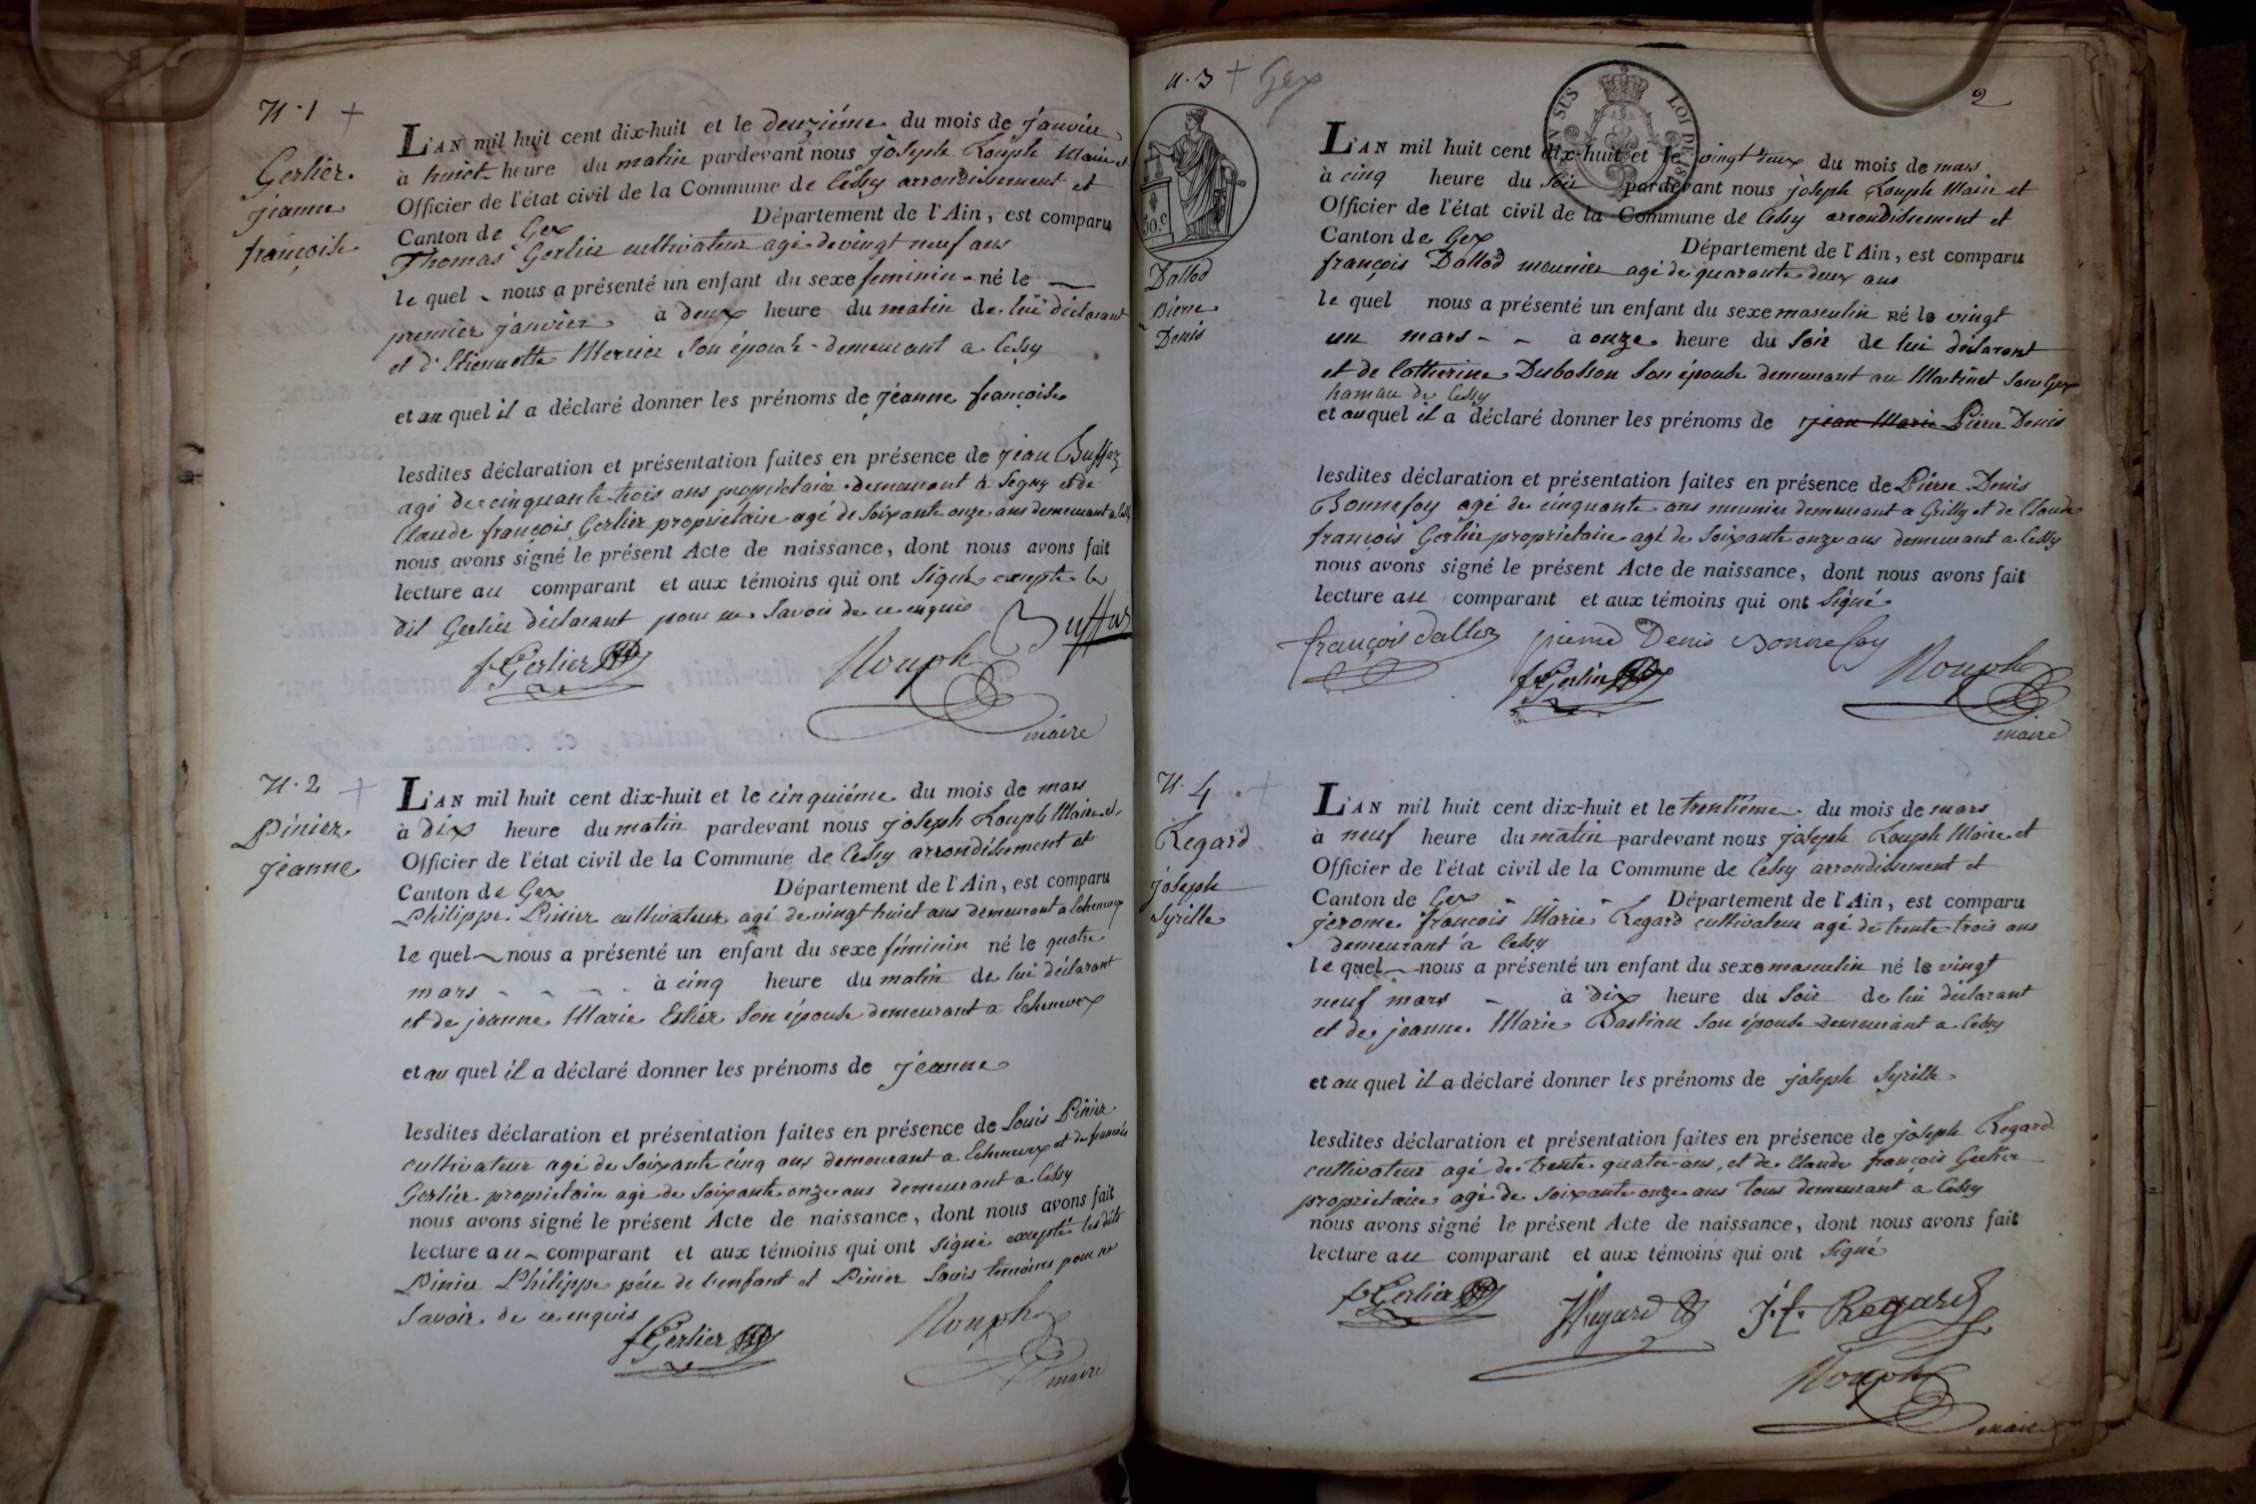 N. 1 +
Gerlier
jeanne
françoise
L'AN mil huit cent dix-huit et le deuziéme du mois de janvier
à huict heure du matin pardevant nous joseph Rouph Maire et
Officier de l'état civil de la Commune de Cessy arrondissement et
Canton de Gex Département de l'Ain, est comparu
Thomas Gerlier cultivateur agé de vingt neuf ans
le quel nous a présenté un enfant du sexe feminin né le
premier janvier à deux heure du matin de lui déclarant
et d'Etiennette Mercier son épouse demeurant a Cessy
et au quel il a déclaré donner les prénoms de jeanne françoise
lesdites déclaration et présentation faites en présence de jean Buffaz
agé de cinquante trois ans propriétaire demeurant à Segny et de
Claude françois Gerlier propriétaire agé de soixante onze ans demeurant a Cessy
nous avons signé le présent Acte de naissance, dont nous avons fait
lecture au comparant et aux témoins qui ont signé excepté le
dit Gerlier déclarant pour ne savoir de ce enquis
Buffaz
f Gerlier
Rouph
maire
N. 2 +
Pinier
jeanne
L'AN mil huit cent dix-huit et le cinquiéme du mois de mars
à dix heure du matin pardevant nous joseph Rouph Maire et
Officier de l'état civil de la Commune de Cessy arrondissement et
Canton de Gex Département de l'Ain, est comparu
Philippe Pinier cultivateur agé de vingt huict ans demeurant a Echenevex
le quel nous a présenté un enfant du sexe féminin né le quatre
mars - - - - à cinq heure du matin de lui déclarant
et de jeanne Marie son épouse demeurant a Echenevex
et au quel il a déclaré donner les prénoms de jeanne
lesdites déclaration et présentation faites en présence de Louis Pinier
cultivateur agé de soixante cinq ans demeurant a Echenevex et de françois
Gerlier propriétaire agé de soixante onze ans demeurant a Cessy
nous avons signé le présent Acte de naissance, dont nous avons fait
lecture au comparant et aux témoins qui ont signé excepté les dits
Pinier Philippe pére de l'enfant et Pinier Louis temoins pour ne
savoir de ce enquis
f Gerlier
Rouph
maire
n. 3 + Gex
2
50.c
SUS
LOI DE
Dallod
Pierre
Denis
L'AN mil huit cent dix-huit et le vingt deux du mois de mars
à cinq heure du soir pardevant nous joseph Rouph Maire et
Officier de l'état civil de la Commune de Cessy arrondissement et
Canton de Gex Département de l'Ain, est comparu
françois Dallod meunier agé de quarante deux ans
le quel nous a présenté un enfant du sexe masculin né le vingt
un mars - - à onze heure du soir de lui déclarant
et de Catherine Dubosson son épouse demeurant au Martinet sous Gex
hamau de Cessy
et au quel il a déclaré donner les prénoms de jean Marie Pierre Denis
lesdites déclaration et présentation faites en présence de Pierre Denis
Bonnefoy agé de cinquante ans meunier demeurant a Grilly et de Claude
françois Gerlier propriétaire agé de soixante onze ans demeurant a Cessy
nous avons signé le présent Acte de naissance, dont nous avons fait
lecture au comparant et aux témoins qui ont signé
françois dalloz pierre Denis Bonnefoy
f Gerlier
Rouph
maire
N. 4 +
Regard
joseph
Syrille
L'AN mil huit cent dix-huit et le trentiéme du mois de mars
à neuf heure du matin pardevant nous joseph Rouph Maire et
Officier de l'état civil de la Commune de Cessy arrondissement et
Canton de Gex Département de l'Ain, est comparu
jerome françois Marie Regard cultivateur agé de trente trois ans
demeurant a Cessy
le quel nous a présenté un enfant du sexe masculin né le vingt
neuf mars - à dix heure du soir de lui déclarant
et de jeanne Marie Bastian son épouse demeurant a Cessy
et au quel il a déclaré donner les prénoms de joseph Syrille
lesdites déclaration et présentation faites en présence de joseph Regard
cultivateur agé de trente quatre ans, et de Claude françois Gerlier
propriétaire agé de soixante onze ans tous demeurant a Cessy
nous avons signé le présent Acte de naissance, dont nous avons fait
lecture au comparant et aux témoins qui ont signé
f Gerlier
J Regard
J. f. Regard
Rouph
maire